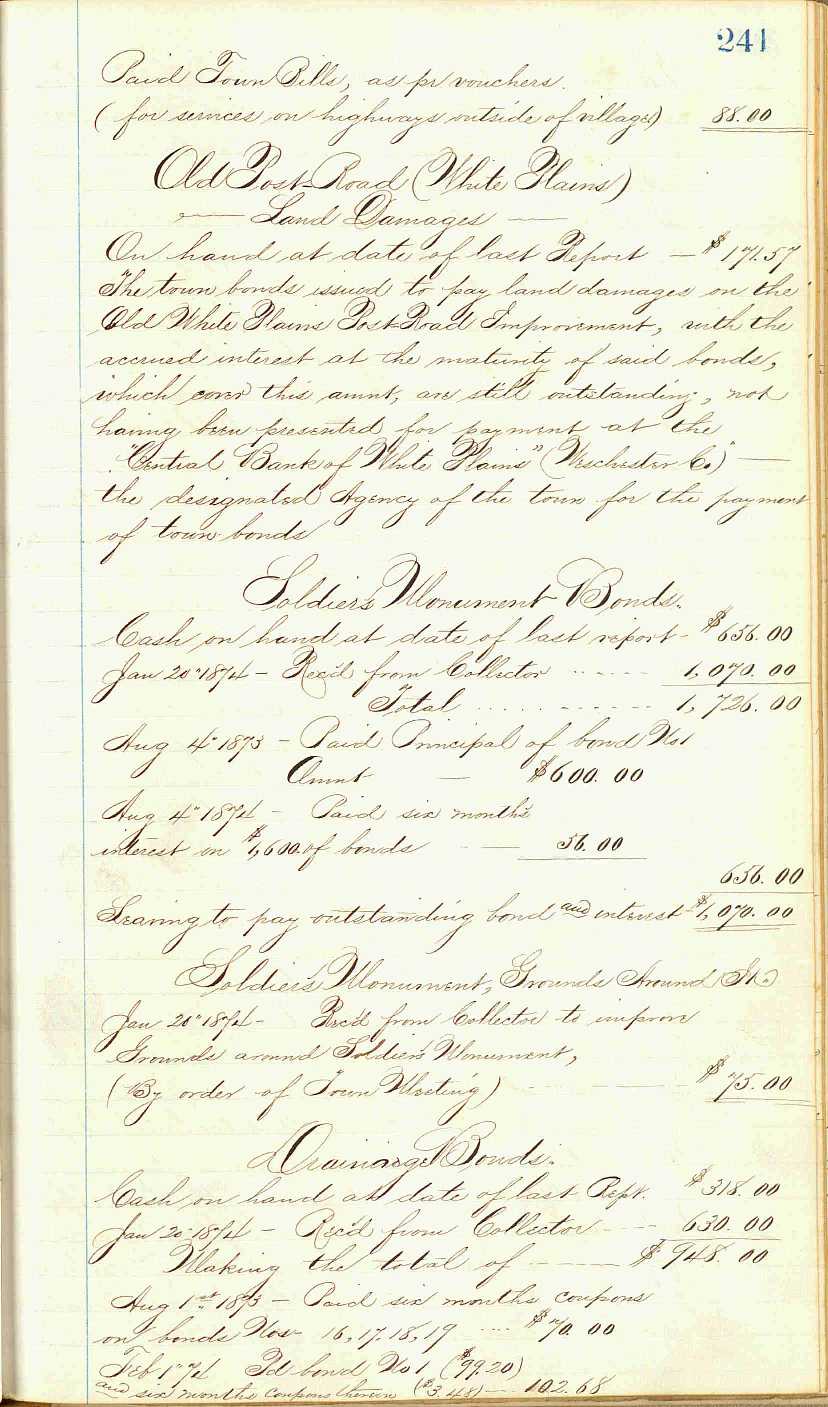 241
Paid Town Bills, as pr vouchers.
(for services on highways outside of village) 88.00
Old Post-Road (White Plains)
— Land Damages —
On hand at date of last Report — $171.57
The town bonds issued to pay land damages on the
Old White Plains Post-Road Improvement, with the
accrued interest at the maturity of said bonds,
which cover this amnt, are still outstanding, not
having been presented for payment at the
"Central Bank of White Plains" (Weschester Co) —
the designated Agency of the town for the payment
of town bonds
Soldier's Monument Bonds.
Cash on hand at date of last report - $656.00
Jan 20" 1874 - Rec'd from Collector ------ 1,070.00
Total ........... 1,726.00
Aug 4" 1873 - Paid Principal of bond No 1
Amnt — $600.00
Aug 4" 1874 - Paid six months
interest on $1,600. of bonds - — 56.00
656.00
Leaving to pay outstanding bond and interest - $1,070.00
Soldier's Monument, Grounds Around It.)
Jan 20" 1874 - Rec'd from Collector to improve
Grounds around Soldier's Monument,
(By order of Town Meeting) ---- — - $75.00
Drainage Bonds.
Cash on hand at date of last Rept. $318.00
Jan 20" 1874 - Rec'd from Collector ---- 630.00
Making the total of - —— $948.00
Aug 1st 1873 - Paid six months coupons
on bonds Nos 16, 17, 18, 19 .... $70.00
Feb 1" 74 Pd bond No 1 ($99.20)
and six months coupons thereon ($3.48) — 102.68